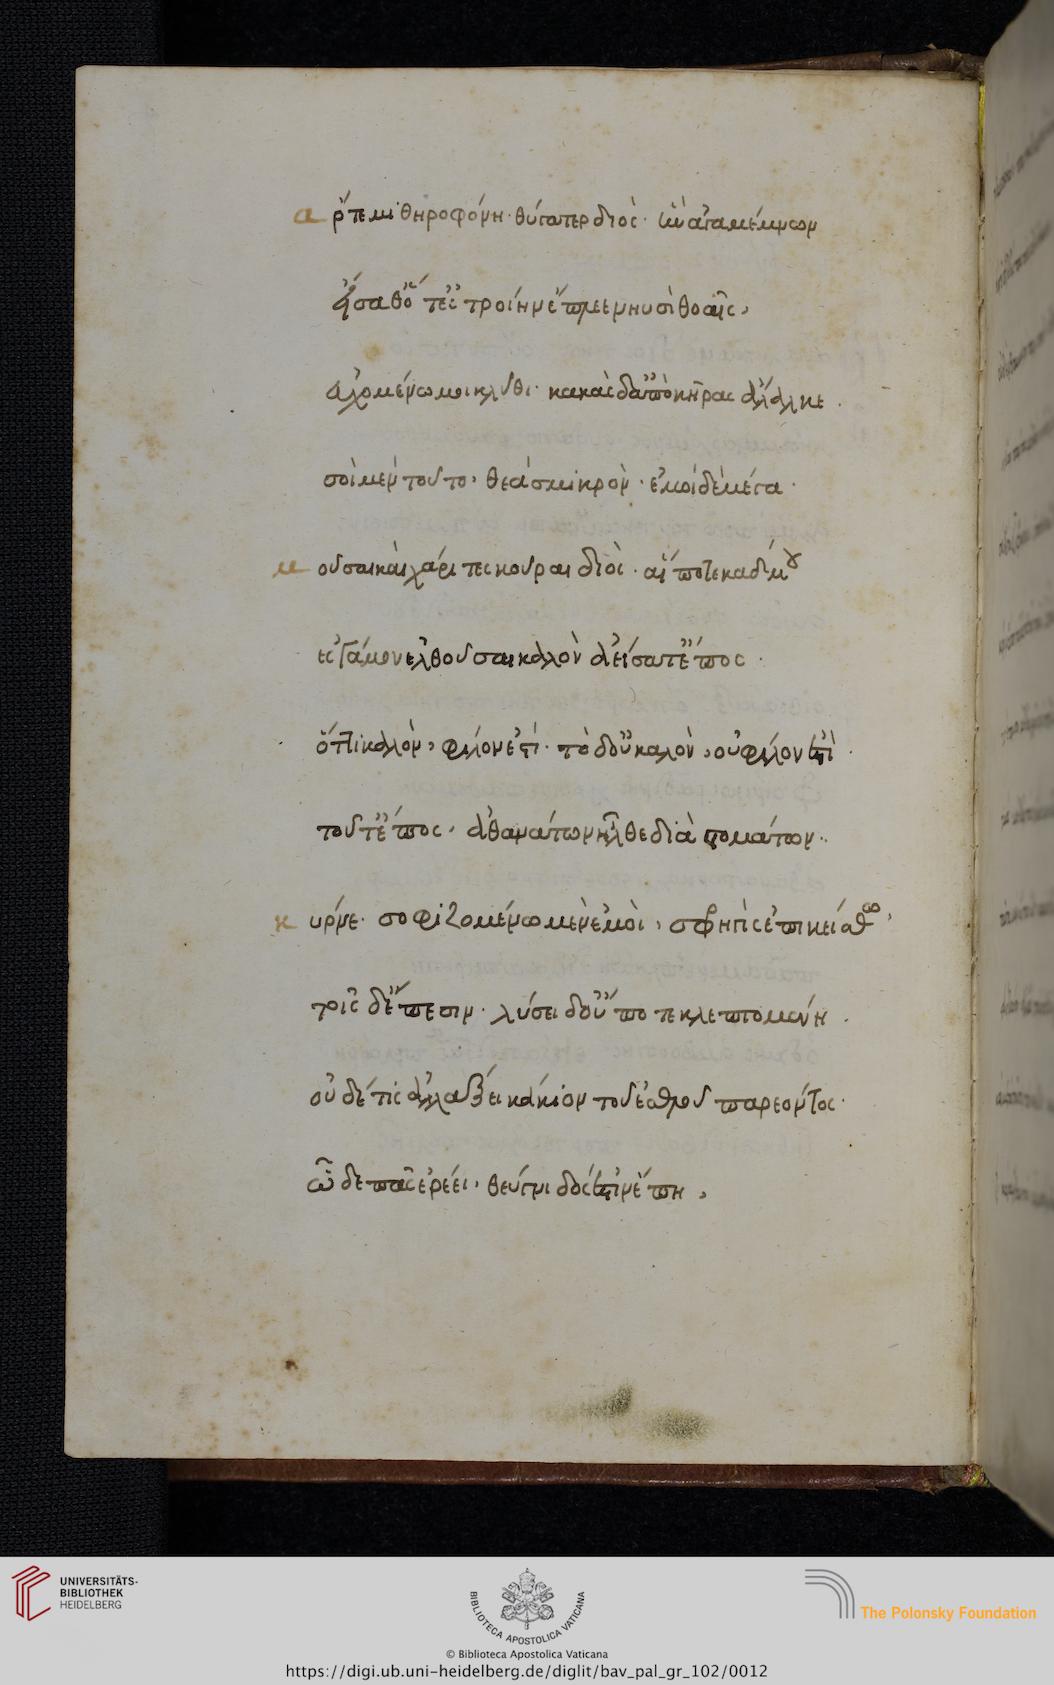 αρτεμι θηροφόνη· θύγατερ διός· ἣν ἀγαμέμνων
εἵσαθ' ὅτ' ἐς τροίην ἔπλεε νηυσὶ θοαῖς,
εὐχομένω μοι κλῦθι· κακὰς δ' ἀπὸ κῆρας ἄλαλκε.
σοὶ μὲν τοῦτο, θεὰ σμικρὸν· ἐμοὶ δὲ μέγα·
μουσαι καὶ χάριτες κοῦραι διὸς· αἵ ποτε κάδμου
ἐς γάμον ἐλθοῦσαι καλὸν ἀείσατ' ἔπος·
ὅττι καλὸν, φίλον ἐστί· τὸ δ' οὐ καλὸν, οὐ φίλον ἐστὶ·
τοῦτ' ἔπος, ἀθανάτων ἦλθε διὰ στομάτων·
κυρνε· σοφιζομένω μὲν ἐμοὶ, σφρηγὶς ἐπικείσθω,
τοῖς δ' ἔπεσιν· λύσει δ' οὔποτε κλεπτομένη.
οὐδέ τις ἀλλάξει κάκιον τοῦ ἐσθλοῦ παρεόντος·
ὧδε πᾶς ἐρέει, θεύγνιδός ἐστιν ἔπη,
UNIVERSITÄTS-
BIBLIOTHEK
HEIDELBERG
BIBLIOTECA APOSTOLICA VATICANA
The Polonsky Foundation
© Biblioteca Apostolica Vaticana
https://digi.ub.uni-heidelberg.de/diglit/bav_pal_gr_102/0012